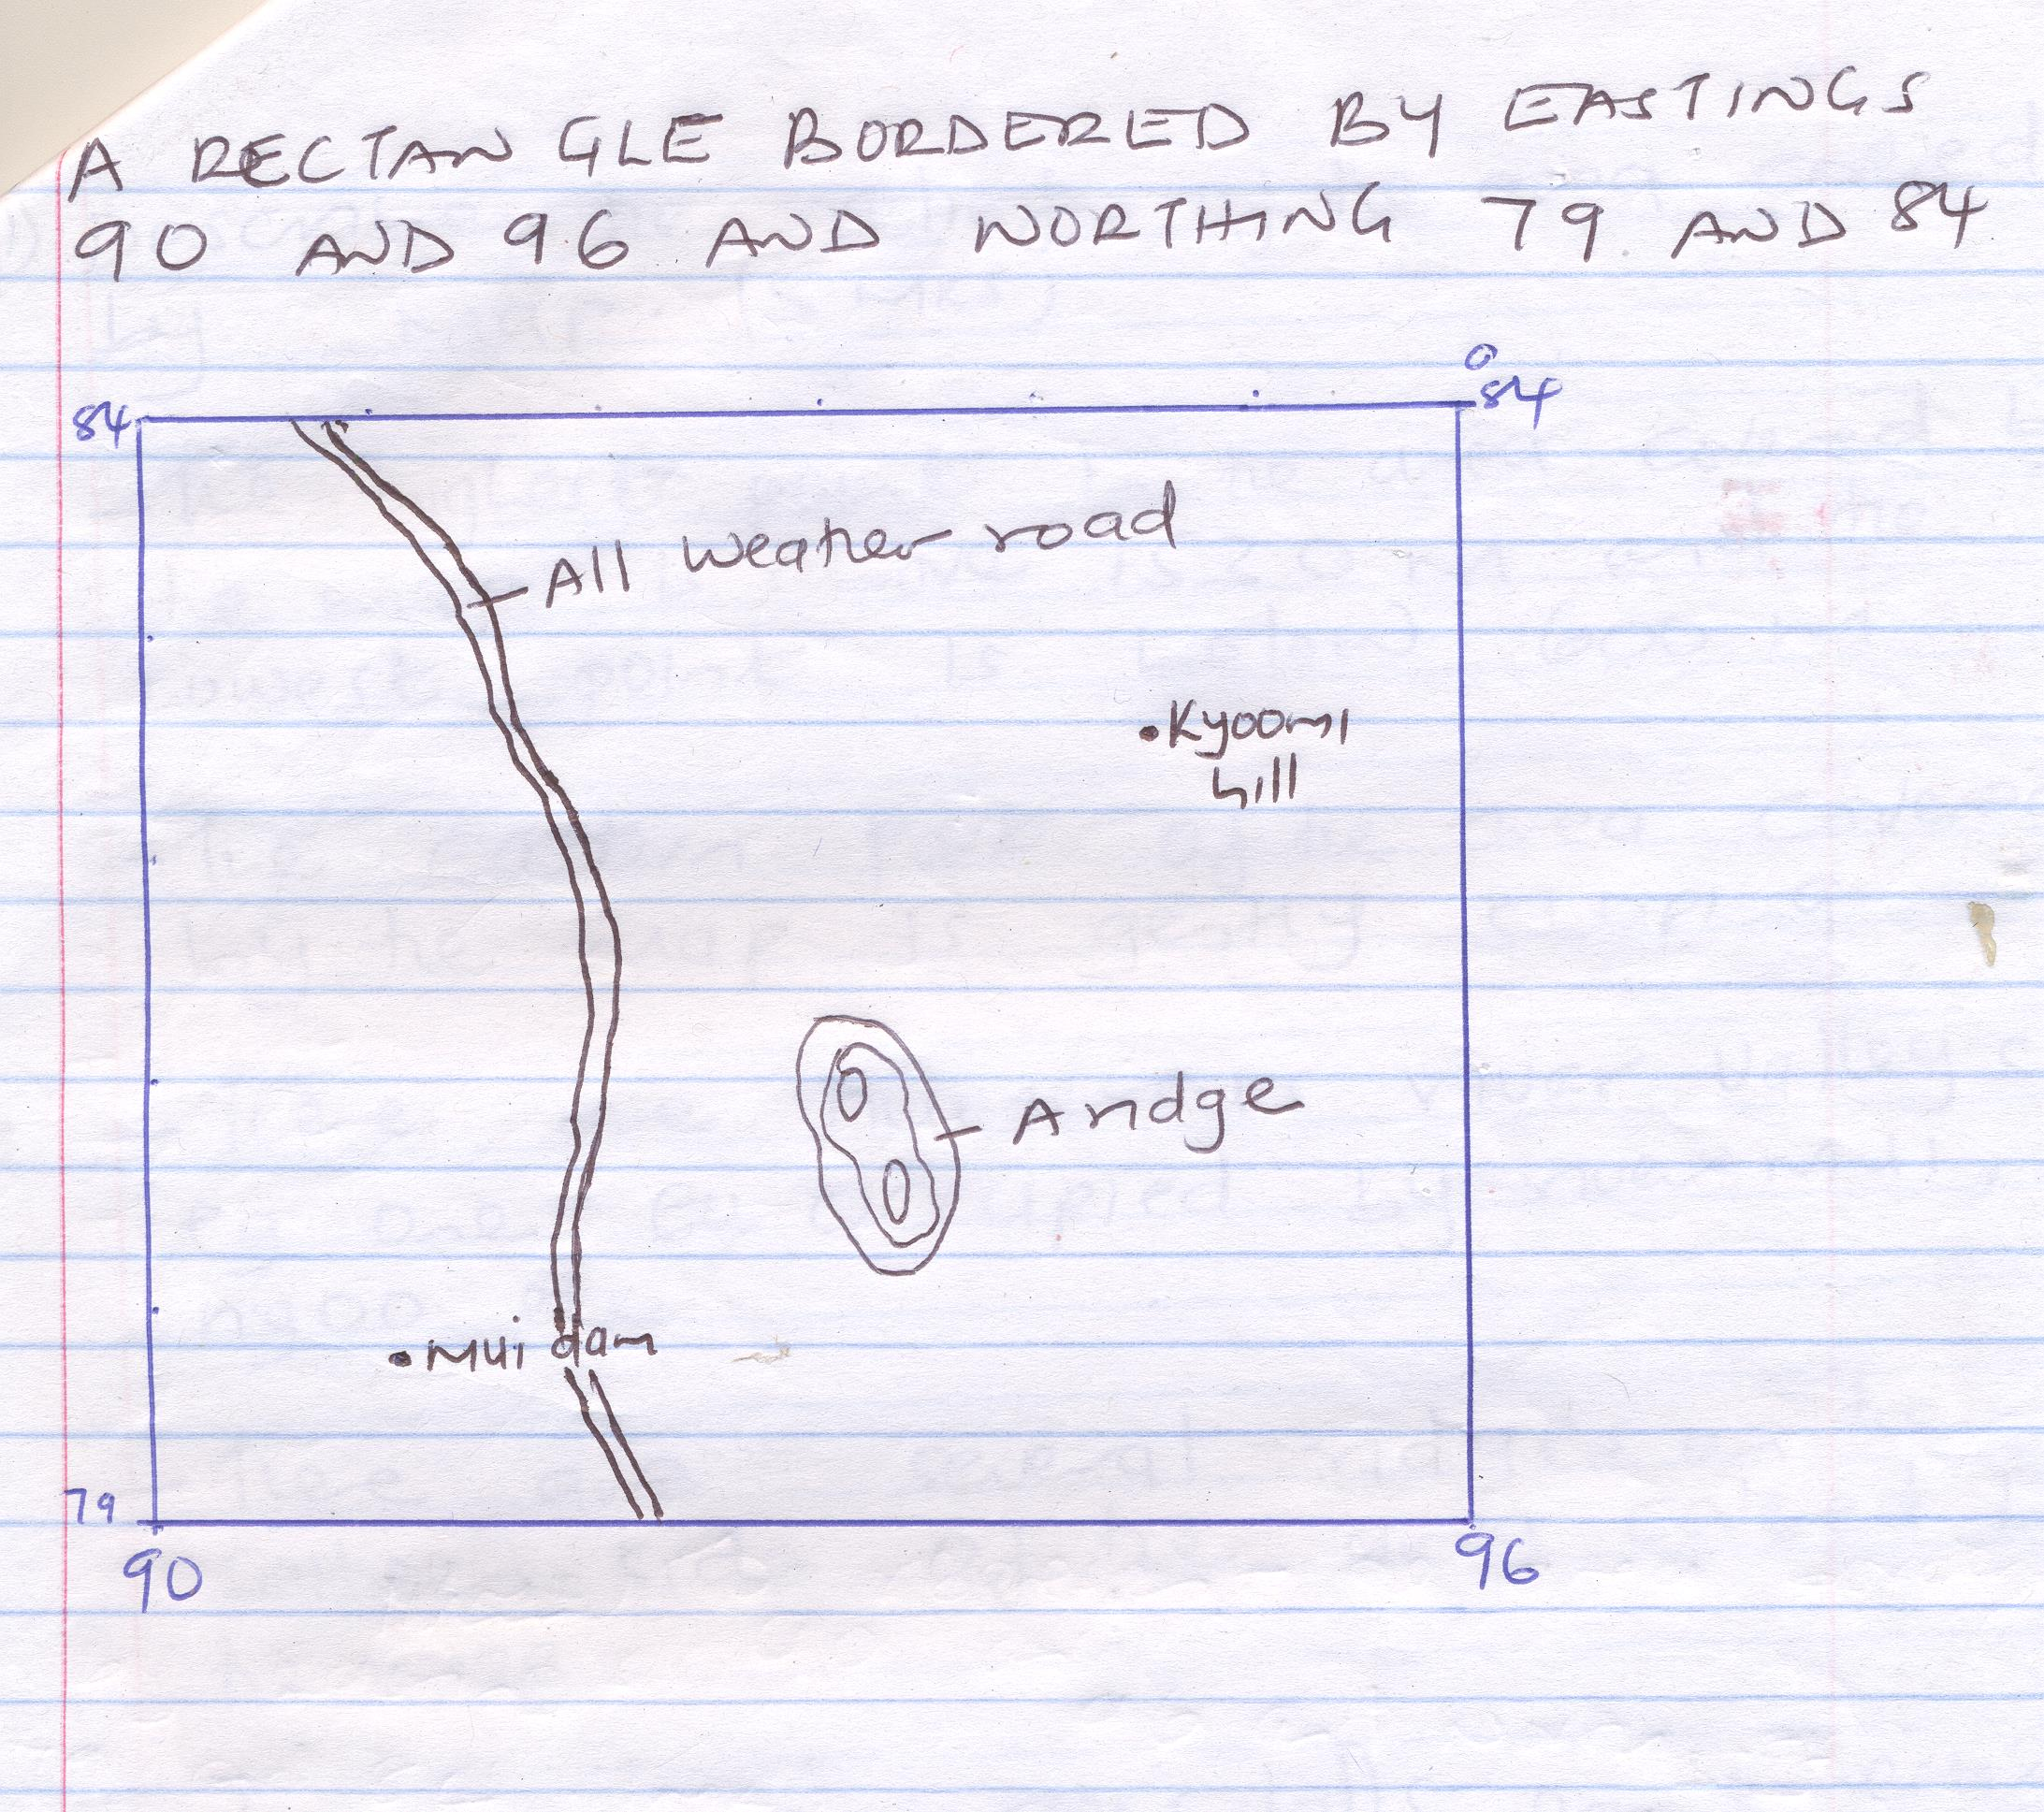 A RECTANGLE BORDERED BY EASTINGS
90 AND 96 AND NORTHING 79 AND 84
84
84
All Weather road
Kyoomi
hill
A ridge
Mui dam
79
90
96